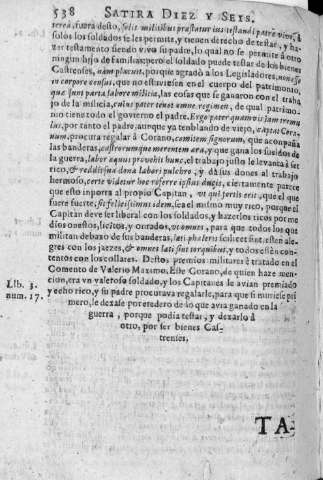 538 SATIRA DIEZ Y SEYS.
terea, fuera desto, solis militibus præstatur ius testandi patre vivo, à
solos los soldados se les permite, y tienen derecho de testar, y ha-
zer testamento siendo vivo su padre, lo qual no se permite à otro
ningun hijo de familias: pero el soldado puede testar de los bienes
Castrenses, nam placuit, porque agradò à los Legisladores, non esse
in corpore census, que no estuviesen en el cuerpo del patrimonio,
que sunt parta labore militiæ, las cosas que se ganaron con el traba-
jo de la milicia, cuius pater tenet omne regimen, de qual patrimo-
nio tiene todo el govierno el padre. Ergo pater quamvis iam tremu-
lus, por tanto el padre, aunque ya temblando de viejo, captat Cora-
num, procura regalar à Corano, comitem signorum, que acompaña
las banderas, castrorumque merentem æra, y que gana los sueldos de
la guerra, labor æquus provehit hunc, el trabajo justo le levanta à ser
rico, & reddit sua dona labori pulchro, y dà sus dones al trabajo
hermoso, certe videtur hoc referre ipsius ducis, ciertamente parece
que esto inporta al propio Capitan, ut qui fortis erit, que el que
fuere fuerte, sit felicissimus idem, sea el mismo muy rico, porque el
Capitan deve ser liberal con los soldados, y hazerlos ricos por me-
dios onestos, licitos, y onrados, ut omnes, para que todos los que
militan debaxo de sus banderas, læti phaleris scilicet sint, esten ale-
gres con los jaezes, & omnes læti sint torquibus, y todos estèn con-
tentos con los collares. Destos premios militares è tratado en el
Comento de Valerio Maximo. Este Corano, de quien haze men-
Lib. 3. cion, era un valeroso soldado, y los Capitanes le avian premiado
num. 17. y echo rico, y su padre procurava regalarle, para que si muriese pri-
mero, le dexase por eredero de lo que avia ganado en la
guerra, porque podia testar, y dexarlo à
otro, por ser bienes Cas-
trenses.
TA-